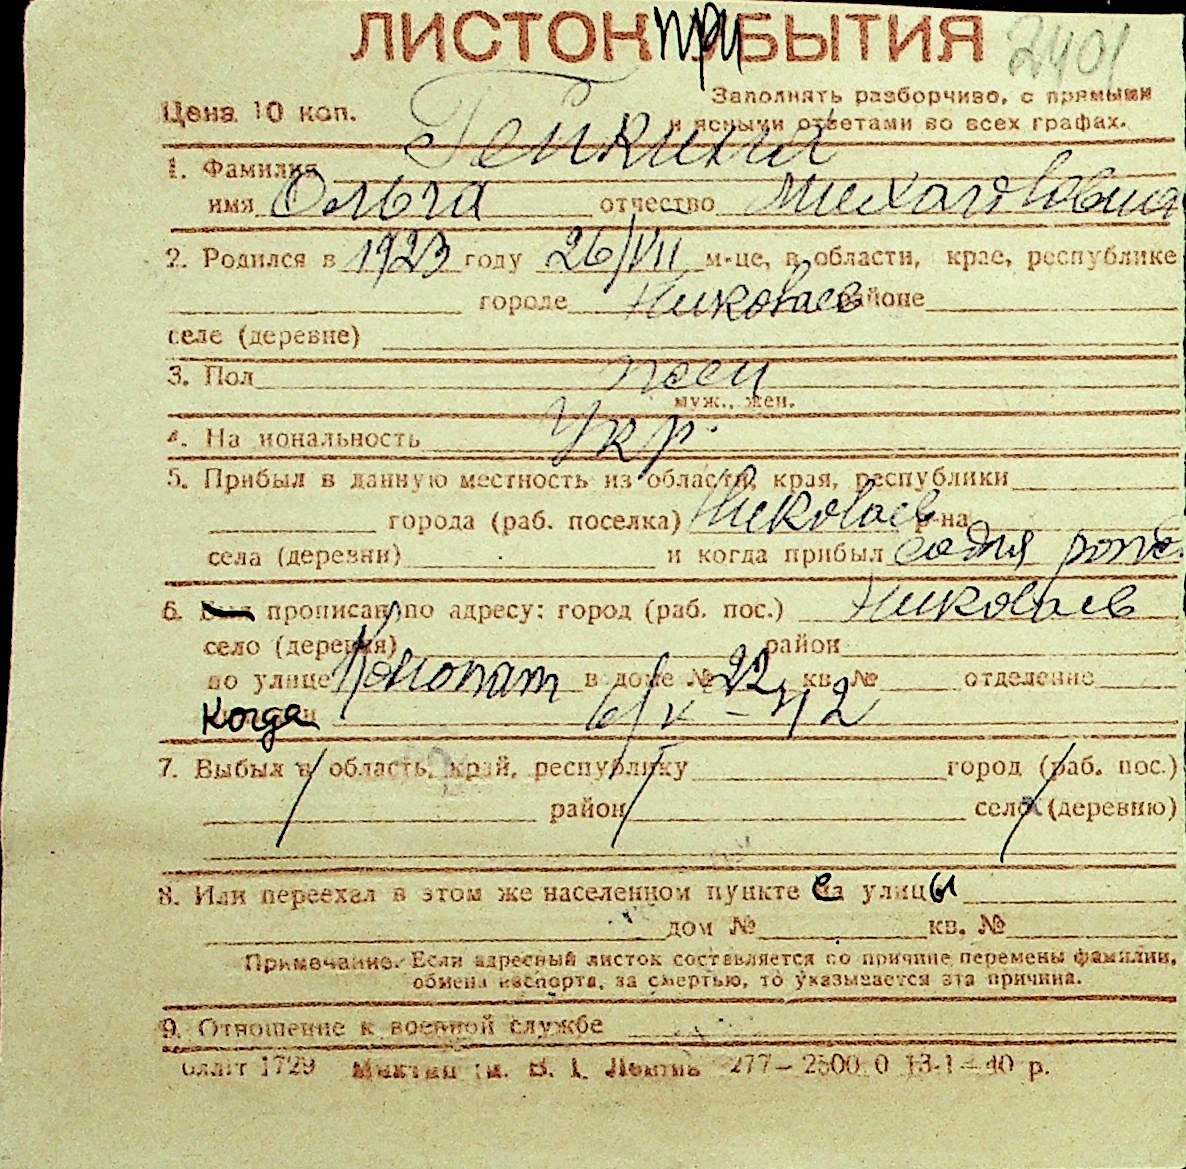 ЛИСТОК ПРИБЫТИЯ 2401
Цена 10 коп. Заполнять разборчиво, с прямыми
и ясными ответами во всех графах.
1. Фамилия Генкина
имя Ольга отчество Михайловна
2. Родился в 1923 году 26/VII м-це, в области, крае, республике
городе Николаев районе
селе (деревне)
3. Пол жен
муж., жен.
4. На иональность Укр.
5. Прибыл в данную местность из области, края, республики
города (раб. поселка) Николаев р-на
села (деревни) и когда прибыл
6. прописан по адресу: город (раб. пос.) Николаев
село (деревня) район
по улице в доме № 22 кв. № отделение
когда
7. Выбыл в область, край, республику город (раб. пос.)
район село (деревню)
8. Или переехал в этом же населенном пункте с улицы
дом № кв. №
Примечание. Если адресный листок составляется по причине перемены фамилии,
обмена паспорта, за смертью, то указывается эта причина.
9. Отношение к военной службе
1729 277—2500 0 13-1—40 р.